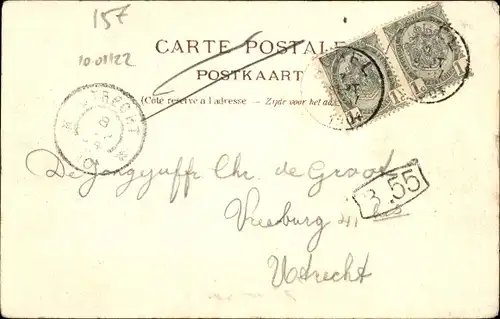 157
10-01/22
CARTE POSTALE
POSTKAART
(Côté réservé à l'adresse — Zijde voor het
UTRECHT
8
3.55
De Jongejuffr. Chr. de Groot
Vreeburg 41
Utrecht